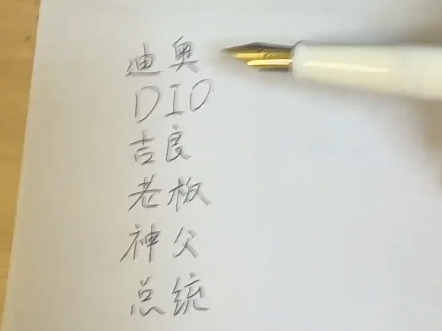 迪奥
DIO
吉良
老板
神父
总统